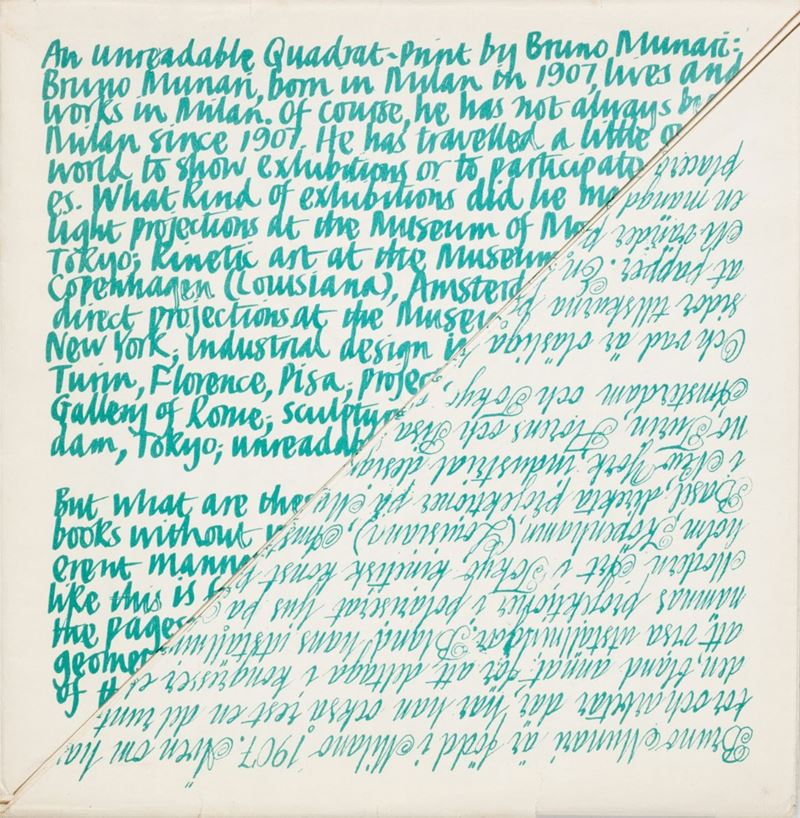 An unreadable Quadrat-Print by Bruno Munari:
Bruno Munari, born in Milan in 1907, lives and
works in Milan. Of course, he has not always be
Milan since 1907. He has travelled a little
world to show exhibitions or to participate
es. What kind of exhibitions did he ma
light projections at the Museum of Mo
Tokyo; kinetic art at the Museum
Copenhagen (Louisiana), Amsterd
direct projections at the Museu
New York; industrial design i
Turin, Florence, Pisa; projec
Gallery of Rome; sculptur
dam, Tokyo; unreadab
But what are thes
books without
erent mann
like this is
the pages
geomet
of th
Bruno Munari är född i Milano 1907. Även om ha
tor och arbetar där, har han också rest en del runt
den, bland annat för att deltaga i kongresser
att visa utställningar. Bland hans utställnin
namnas projektioner i polariserat ljus på
Modern Art i Tokyo kinetisk konst
holm, Köpenhamn (Louisiana), Amst
Basel; direkta projektioner på
i New York; industrial design
no Turin, Florens och Pisa
Amsterdam och Tokyo
Och vad är olösliga
sidor tillskurna
at papper. En
M vänder
en mängd
placerb